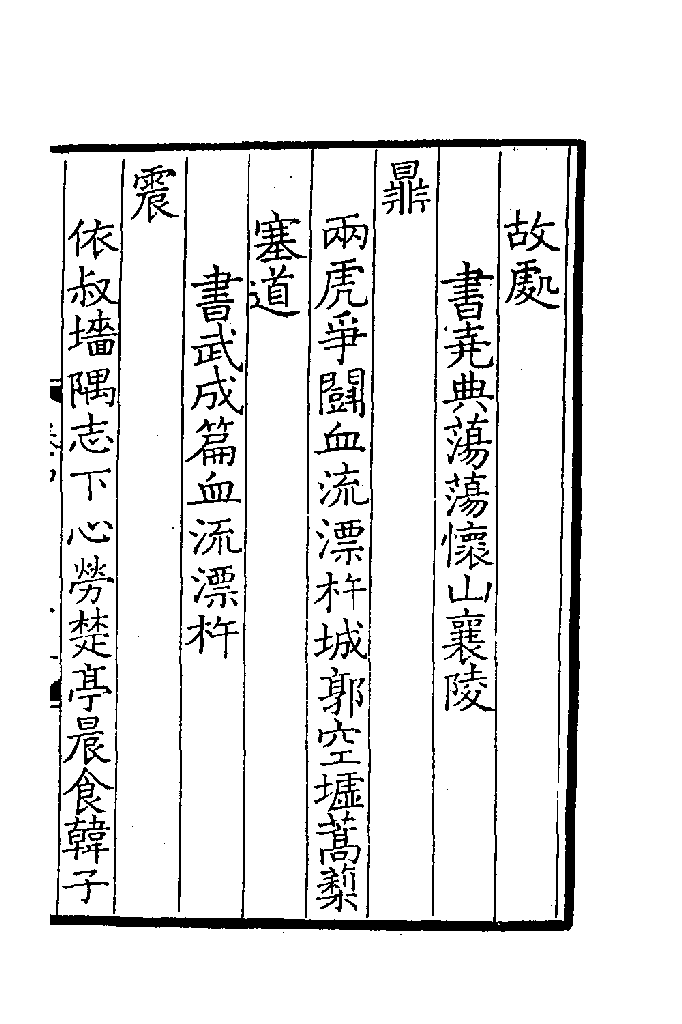 故處
書堯典蕩蕩懷山襄陵
鼎
兩虎爭鬪血流漂杵城郭空墟蒿蔾
塞道
書武成篇血流漂杵
震
依叔墻隅志下心勞楚亭晨食韓子